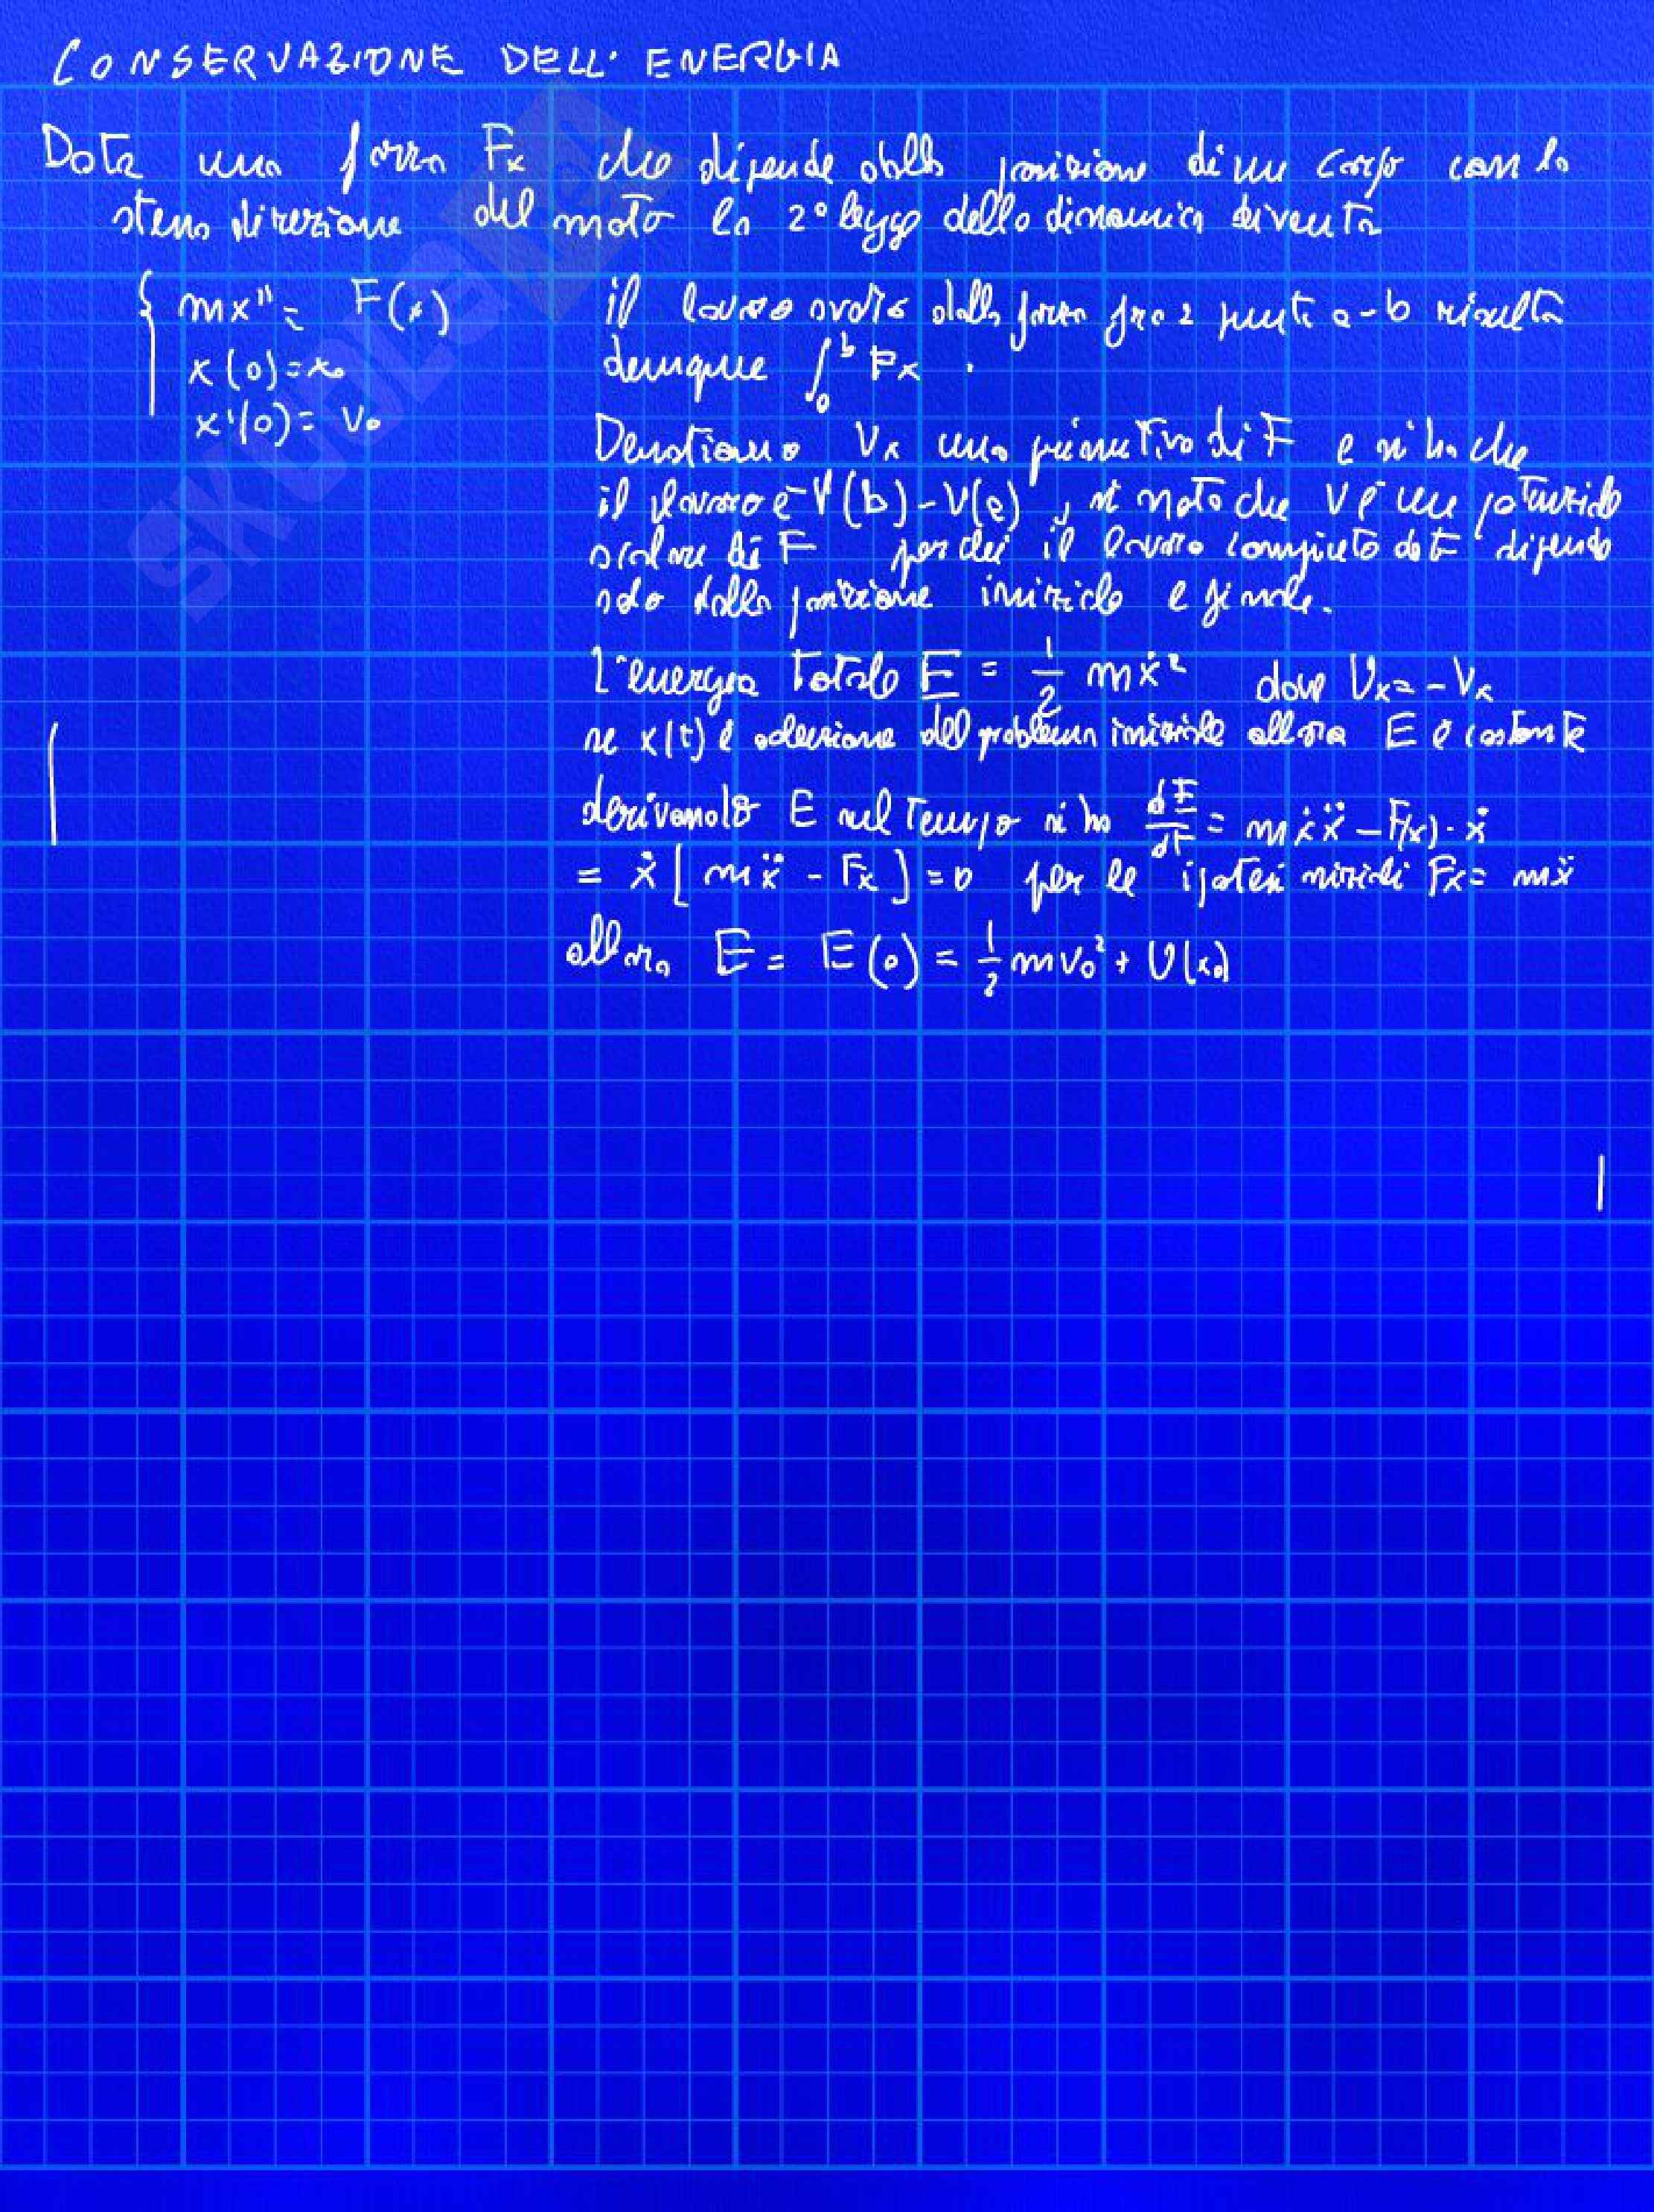 CONSERVAZIONE DELL' ENERGIA
Data una forza Fx che dipende dalla posizione di un corpo con la
stessa direzione del moto la 2° legge della dinamica diventa
{ mx'' = F(x)
x(0) = x₀
x'(0) = v₀
il lavoro svolto dalla forza fra 2 punti a-b risulta
dunque ∫₀ᵇ Fx .
Denotiamo Vx una primitiva di F e si ha che
il lavoro è V(b) - V(a) , si noti che V è un potenziale
scalare di F perchè il lavoro compiuto da F dipende
solo dalla posizione iniziale e finale.
L'energia totale E = 1/2 mẋ² dove Ux = -Vx
se x(t) è soluzione del problema iniziale allora E è costante
derivando E nel tempo si ha dE/dt = mẋẍ - F(x)·ẋ
= ẋ [ mẍ - Fx ] = 0 per le ipotesi iniziali Fx = mẍ
allora E = E(0) = 1/2 mv₀² + U(x₀)
SKUOLA